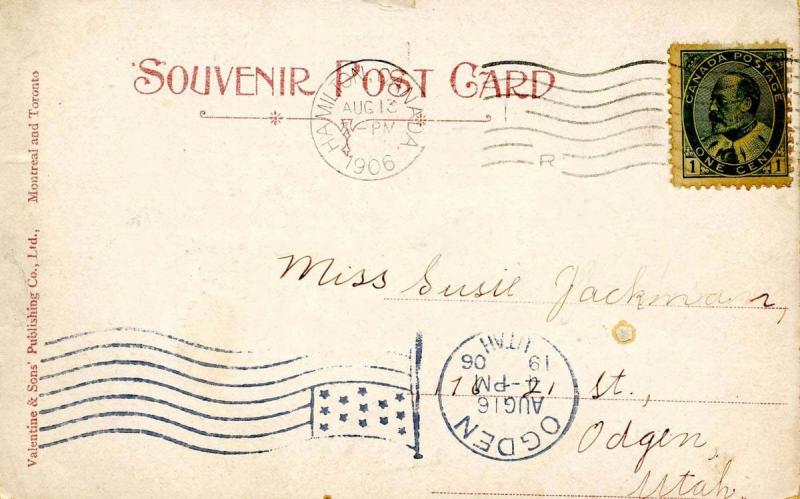 SOUVENIR POST CARD
HAMILTON, CANADA
AUG 13
PM
1906
R
CANADA POSTAGE
1 ONE CENT 1
Valentine & Sons' Publishing Co., Ltd., Montreal and Toronto
Miss Susie Jackman,
21 St.,
Odgen,
Utah.
OGDEN
AUG 16
4-PM
19 06
UTAH